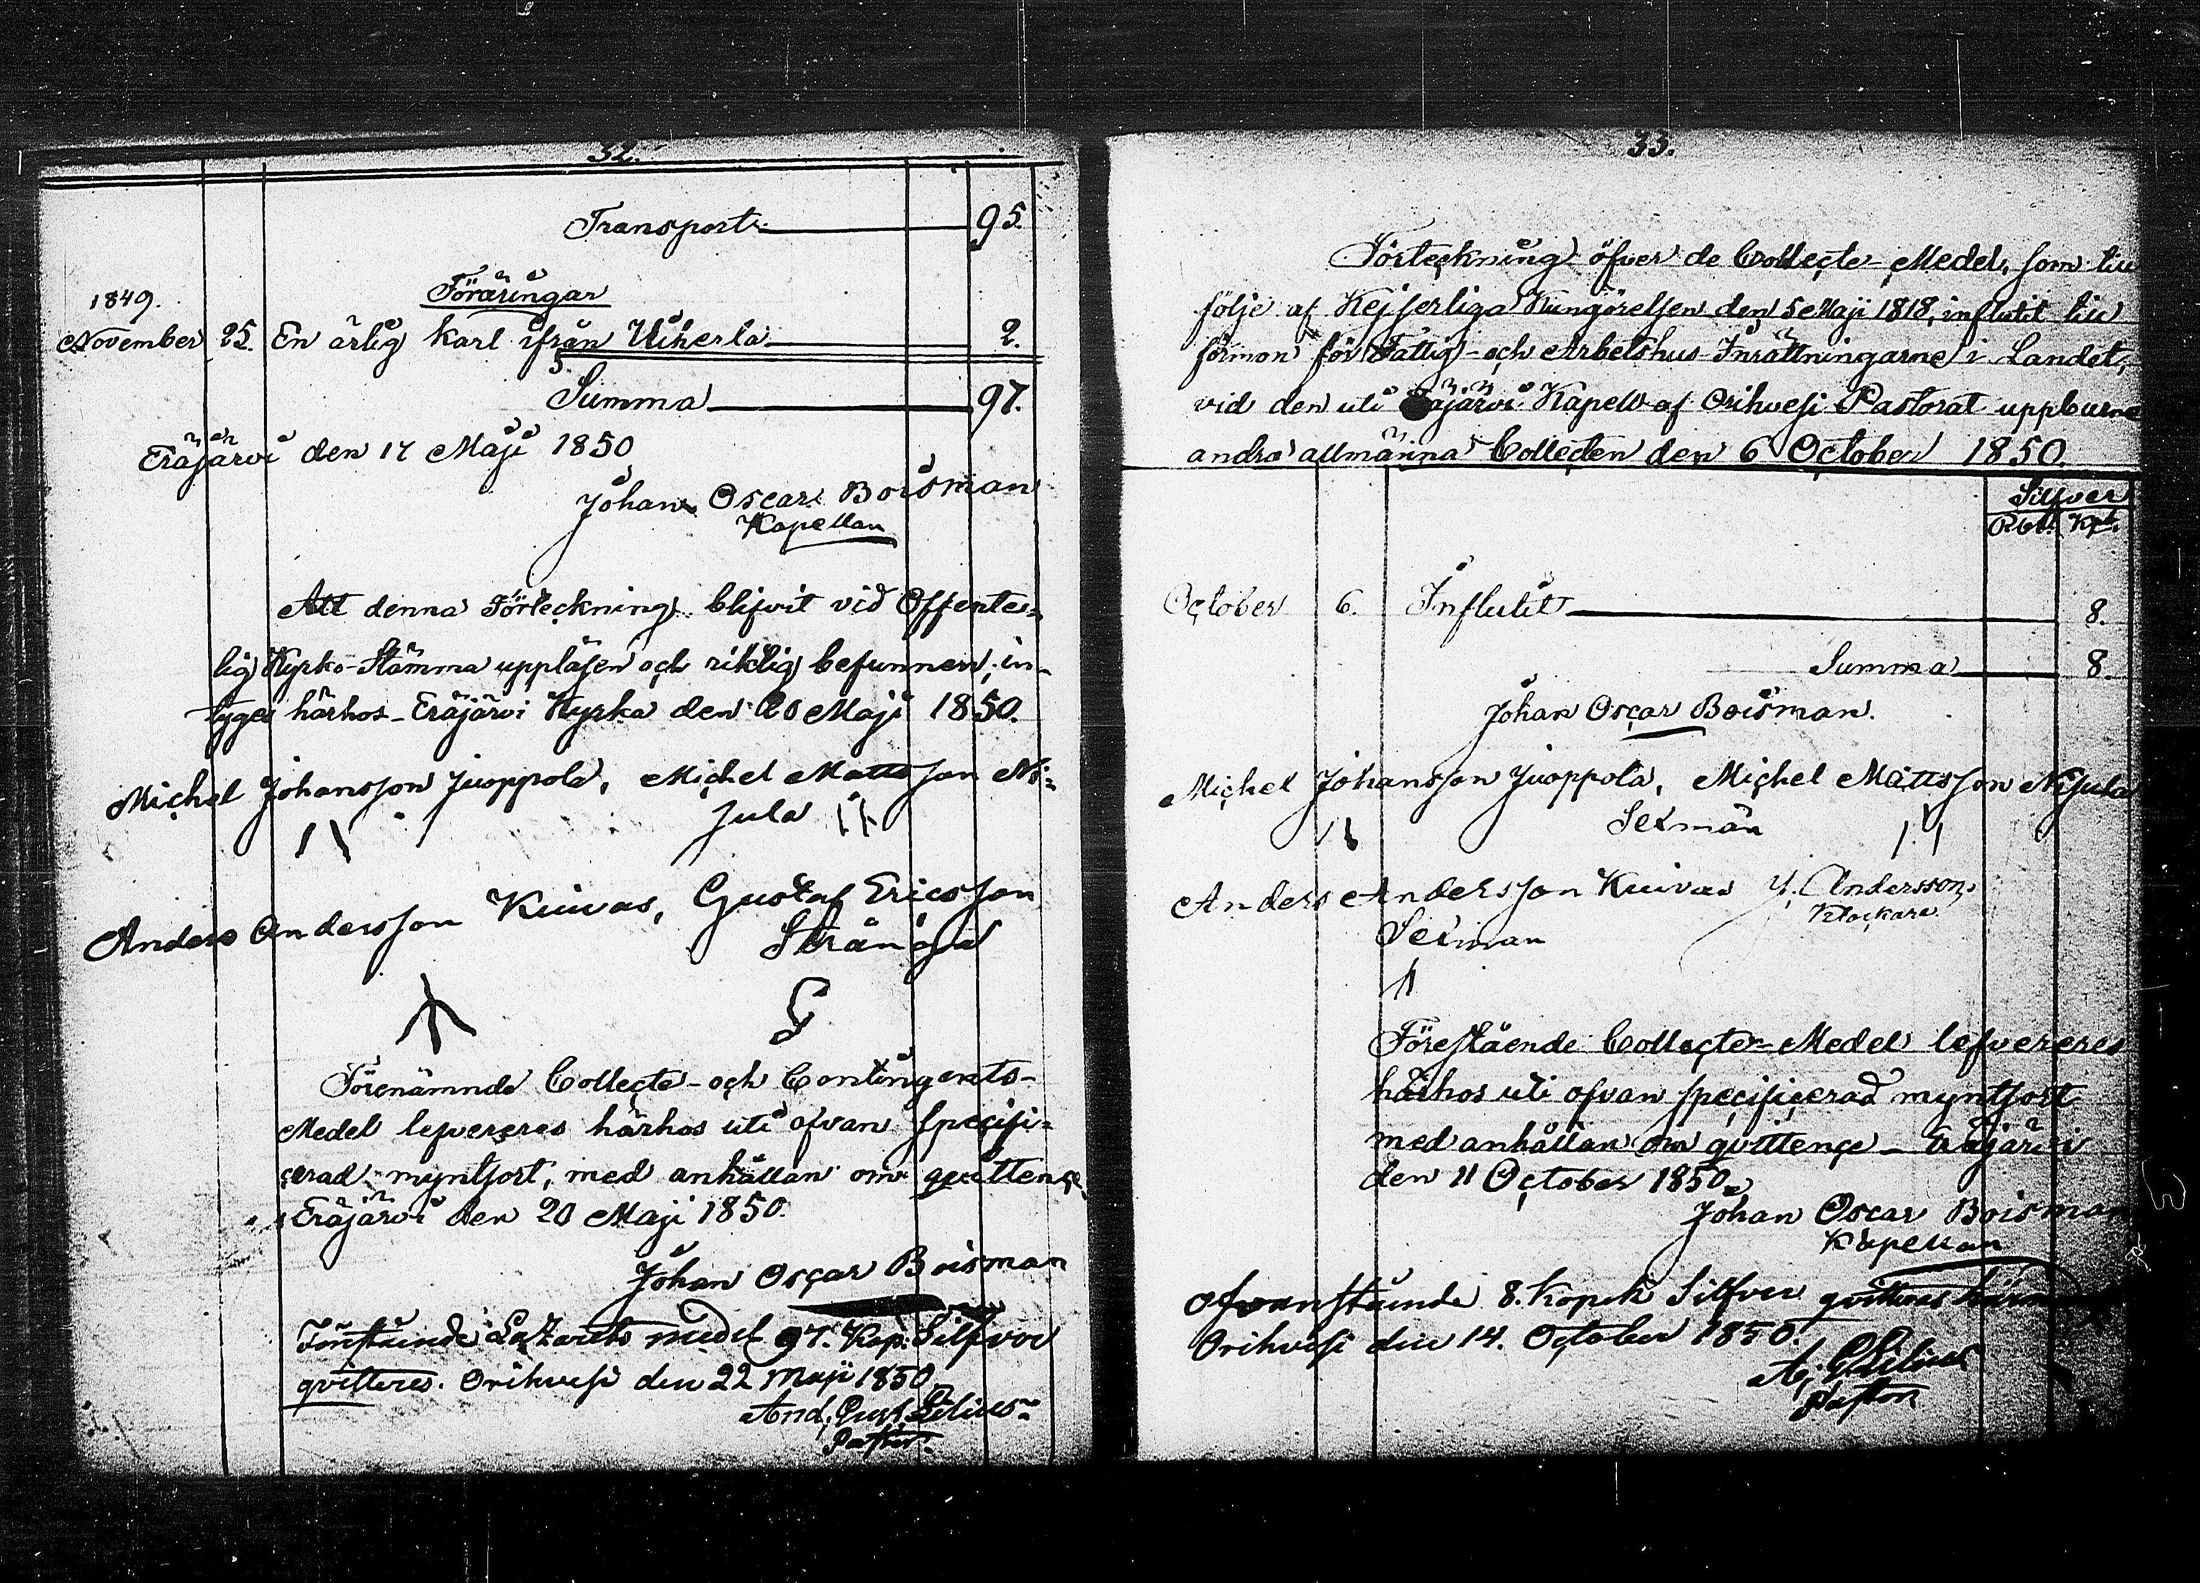 32.
Transport 95.
Föräringar
1849.
November 25. En ärlig karl ifrån Uiherla 2.
Summa 97.
Eräjärvi den 17 Maji 1850
Johan Oscar Boisman
Kapellan
Att denna Förteckning blifvit vid Offente-
lig Kyrko-Stämma uppläsen och riktig befunnen, in-
tygas härhos Eräjärvi Kyrka den 20 Maji 1850.
Michel Johansson Juoppola, Michel Mattsson Ni-
jula
Anders Andersson Kuivas, Gustaf Ericsson
Strängd
Förenämnde Collecte- och Contingents-
Medel lefvereras härhos uti ofvan specifi-
cerad myntsort, med anhållan om quittence
Eräjärvi den 20 Maji 1850.
Johan Oscar Boisman
Förestående Lazaretts medel 97. Kop. Silfver
qvitteras. Orihvesi den 22 Maji 1850
And. Gust. Lilius
Pastor.
33.
Förteckning öfver de Collecte-Medel, som till
följe af Kejserliga Kungörelsen den 5 Maji 1818, influtit till
förmon för Fattig- och Arbetshus-Inrättningarne i Landet,
vid den uti Eräjärvi Kapell af Orihvesi Pastorat uppburne
andra allmänna Collecten den 6 October 1850.
Silfver
Rbl. Kpk.
October 6. Influtit 8.
Summa 8.
Johan Oscar Boisman.
Michel Johansson Juoppola, Michel Mattsson Nijula
Sexmän
Anders Andersson Kuivas Y. Andersson,
Klockare.
Sexman
Förestående Collecte-Medel lefvereres
härhos uti ofvan specificerad myntsort
med anhållan om qvittence Eräjärvi
den 11 October 1850
Johan Oscar Boisman
Kapellan
Ofvanstående 8. Kopek Silfver qvitteras härmed
Orihvesi den 14. October 1850.
A. G. Lilius
Pastor